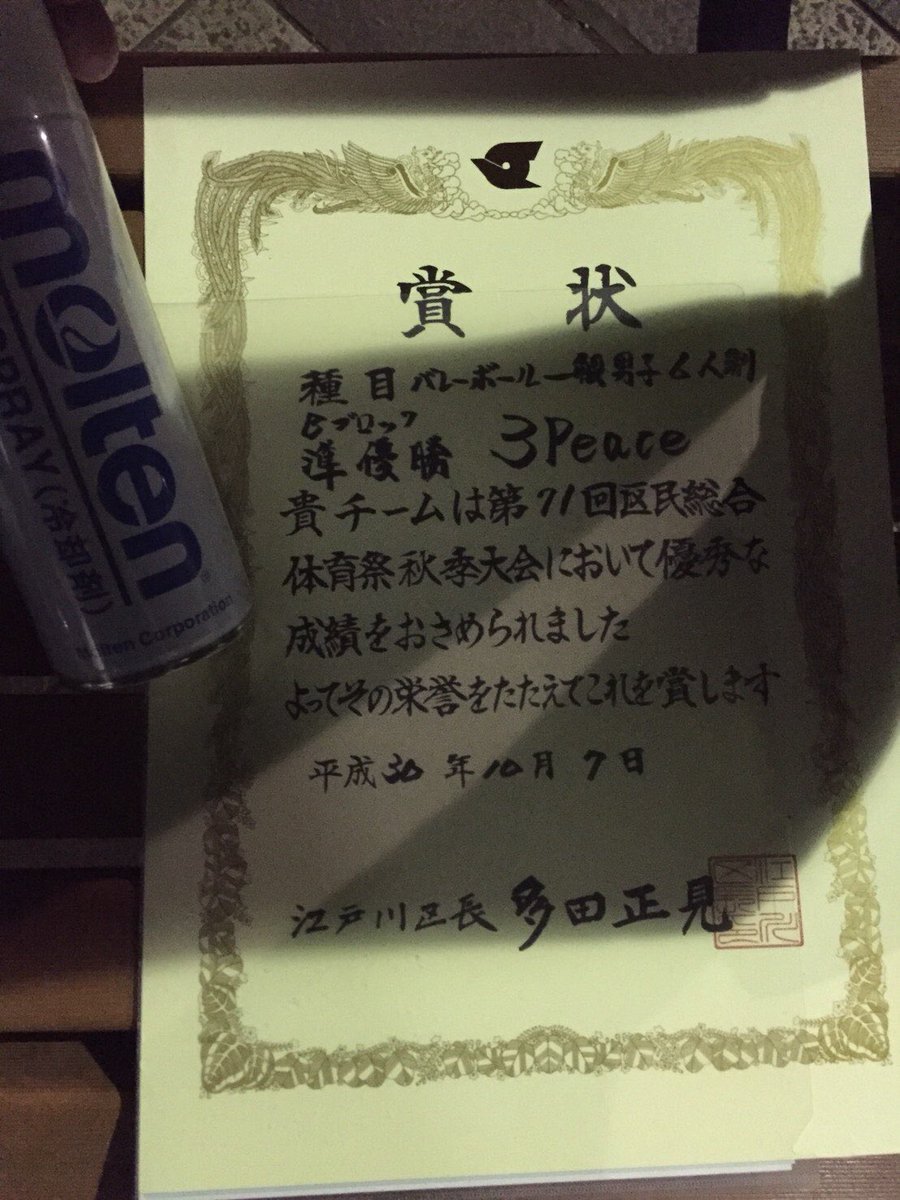 賞状
種目 バレーボール一般男子6人制
Bブロック
準優勝 3Peace
貴チームは第71回区民総合
体育祭秋季大会において優秀な
成績をおさめられました
よってその栄誉をたたえてこれを賞します
平成30年10月7日
江戸川区長 多田正見
molten
SPRAY(冷却剤)
Molten Corporation